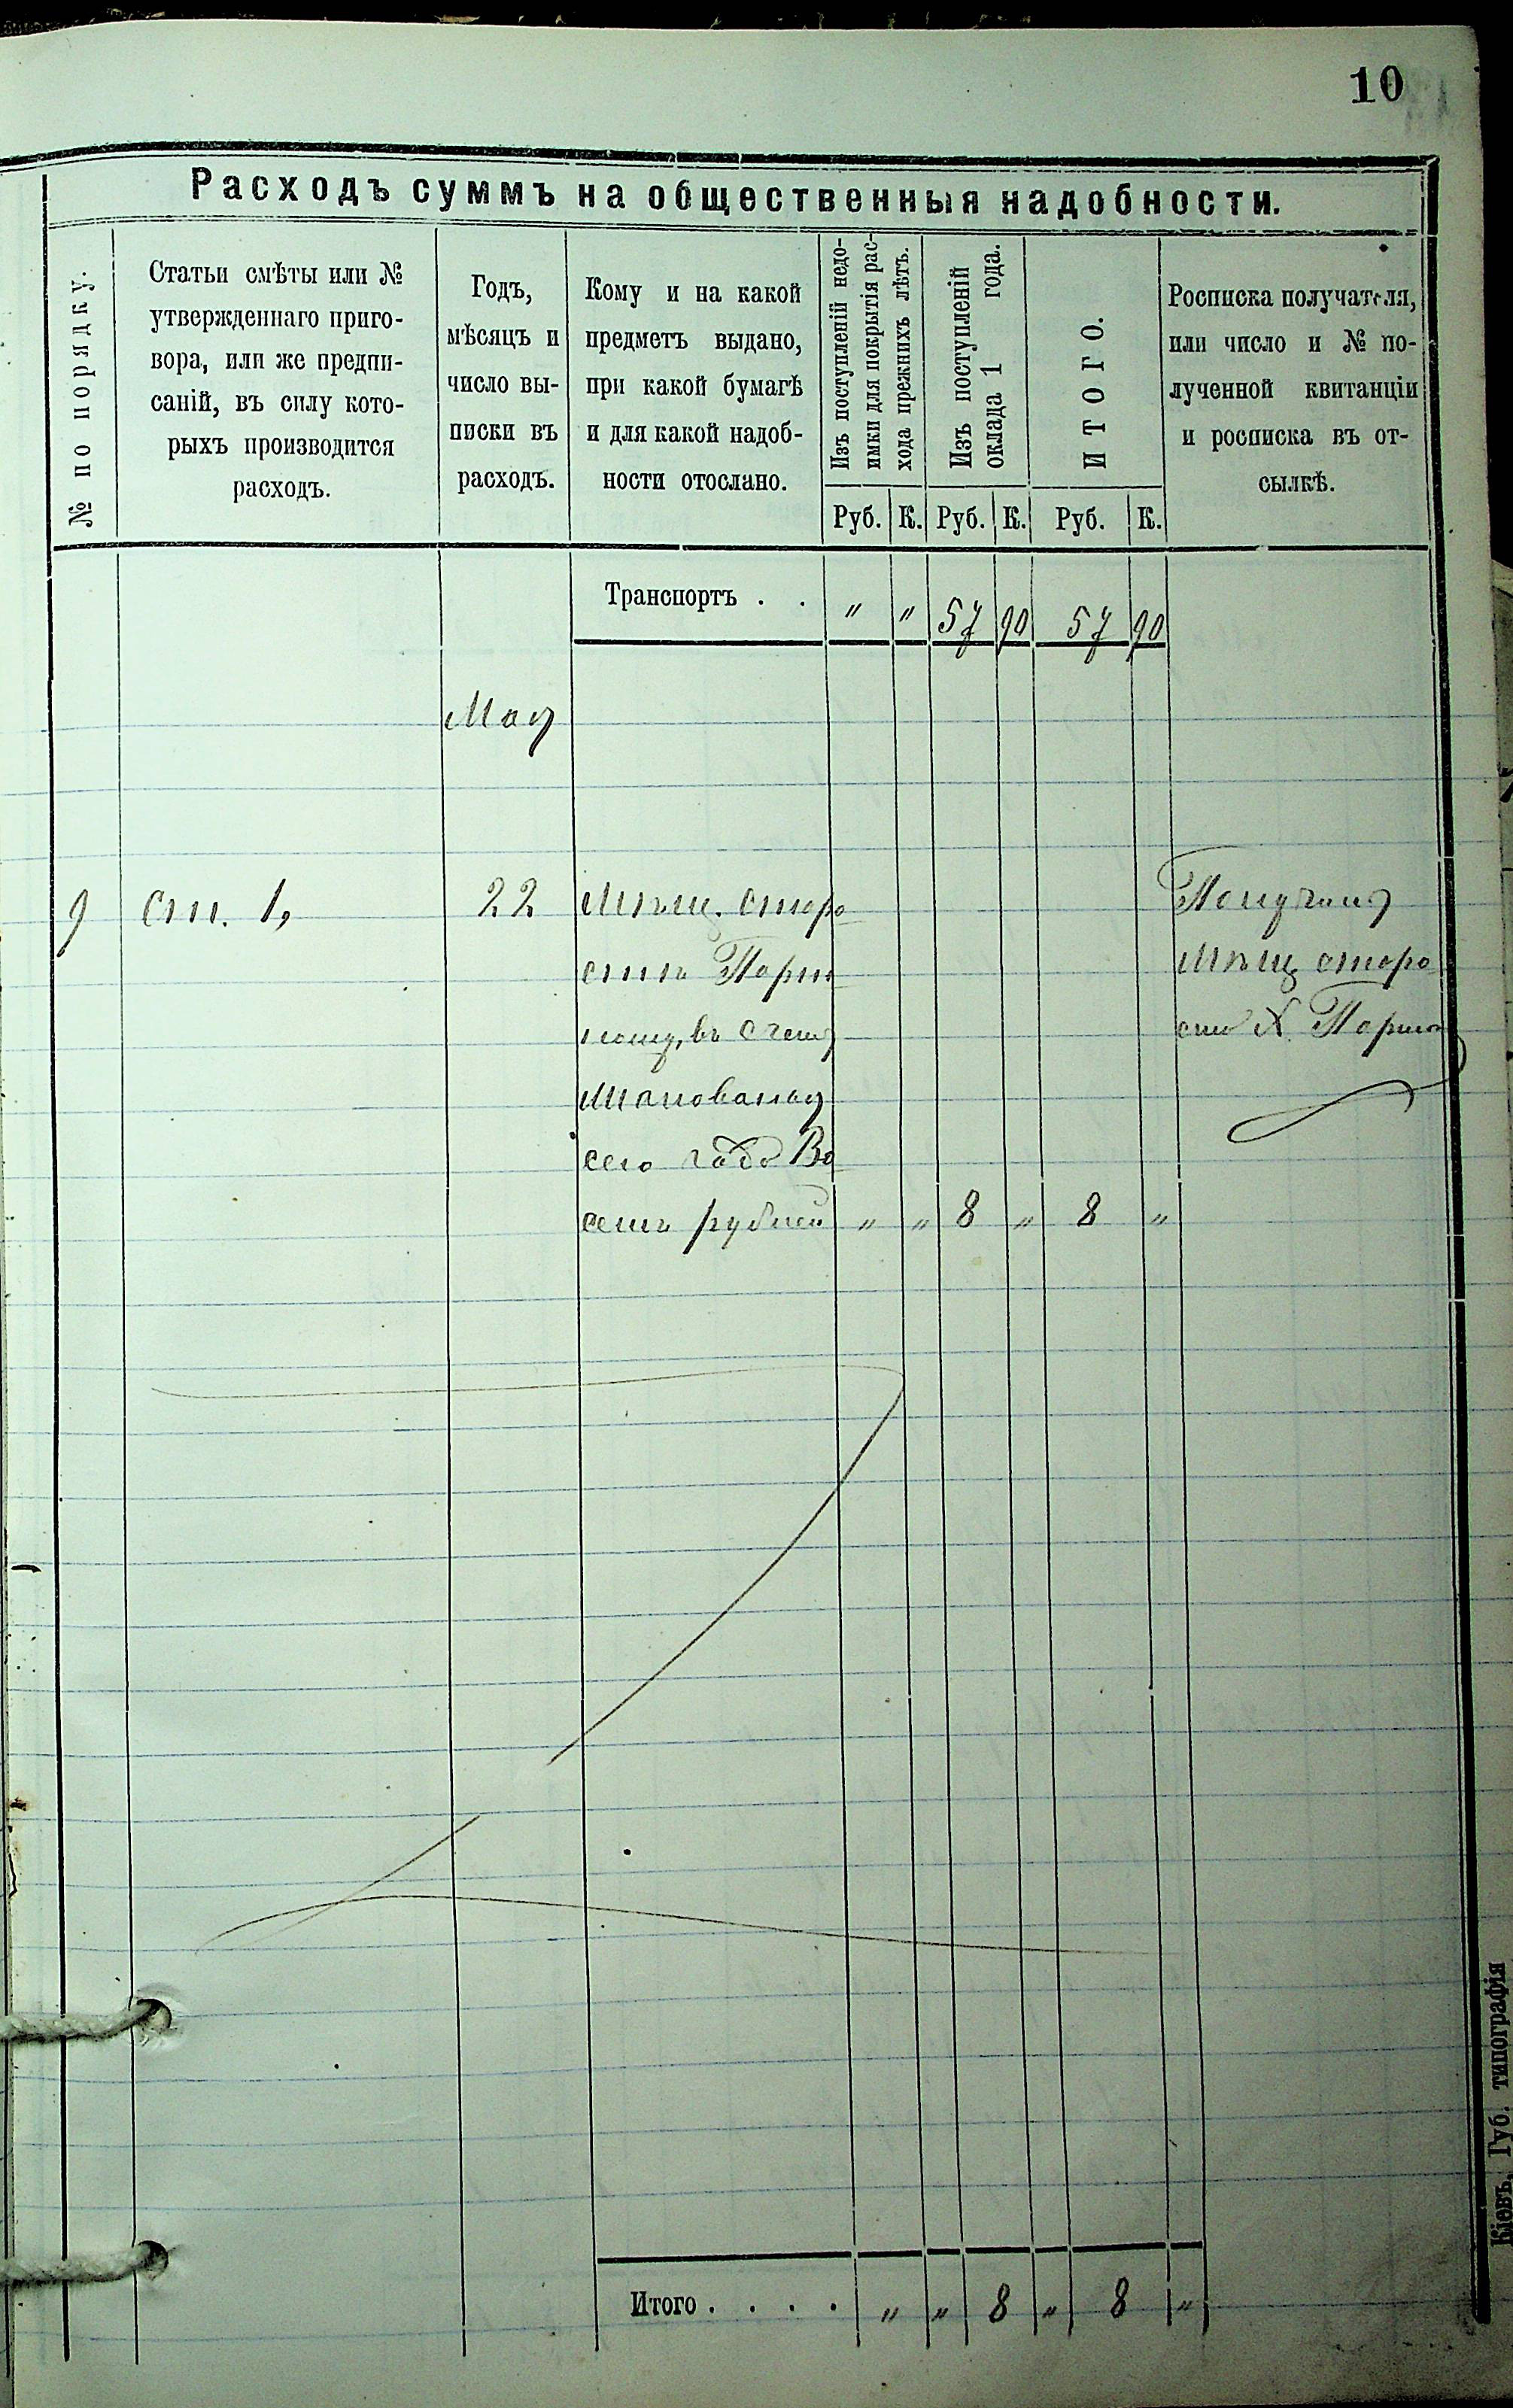 10
Расходъ суммъ на общественныя надобности.
№ по порядку.
Статьи смѣты или №
утвержденнаго приго-
вора, или же предпи-
саній, въ силу кото-
рыхъ производится
расходъ.
Годъ,
мѣсяцъ и
число вы-
писки въ
расходъ.
Кому и на какой
предметъ выдано,
при какой бумагѣ
и для какой надоб-
ности отослано.
Изъ поступленій недо-
имки для покрытія рас-
хода прежнихъ лѣтъ.
Изъ поступленій
оклада 1 года.
ИТОГО.
Росписка получателя,
или число и № по-
лученной квитанціи
и росписка въ от-
сылкѣ.
Руб. К. Руб. К. Руб. К.
Транспортъ . . " " 57 90 57 90
Мая
9 ст. 1, 22 Мѣщ. старо
стѣ
въ счетъ
жалованья
сего года Во
семь рублей " " 8 " 8 "
Получилъ
Мѣщ старо
ста
Итого . . . . " " 8 " 8 "
Кіевъ, Губ. типографія